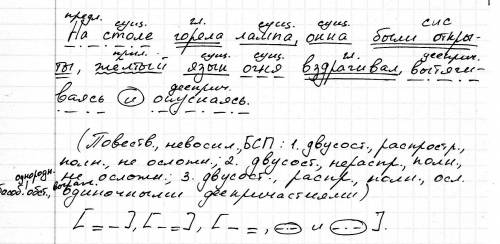 предл. сущ. гл. сущ. сущ. сис
На столе горела лампа, окна были откры-
прил. сущ. сущ. гл. дееприч.
ты, желтый язык огня вздрагивал, вытяги-
дееприч.
ваясь и опускаясь.
(Повеств., невоскл, БСП: 1. двусост., распростр.,
полн., не осложн.; 2. двусост., нераспр., полн.,
не осложн.; 3. двусост., распр., полн., осл.
однородн.
обособ. обст., выраж.
одиночными деепричастиями)
[ = – ], [ – = ], [ – =, и ].